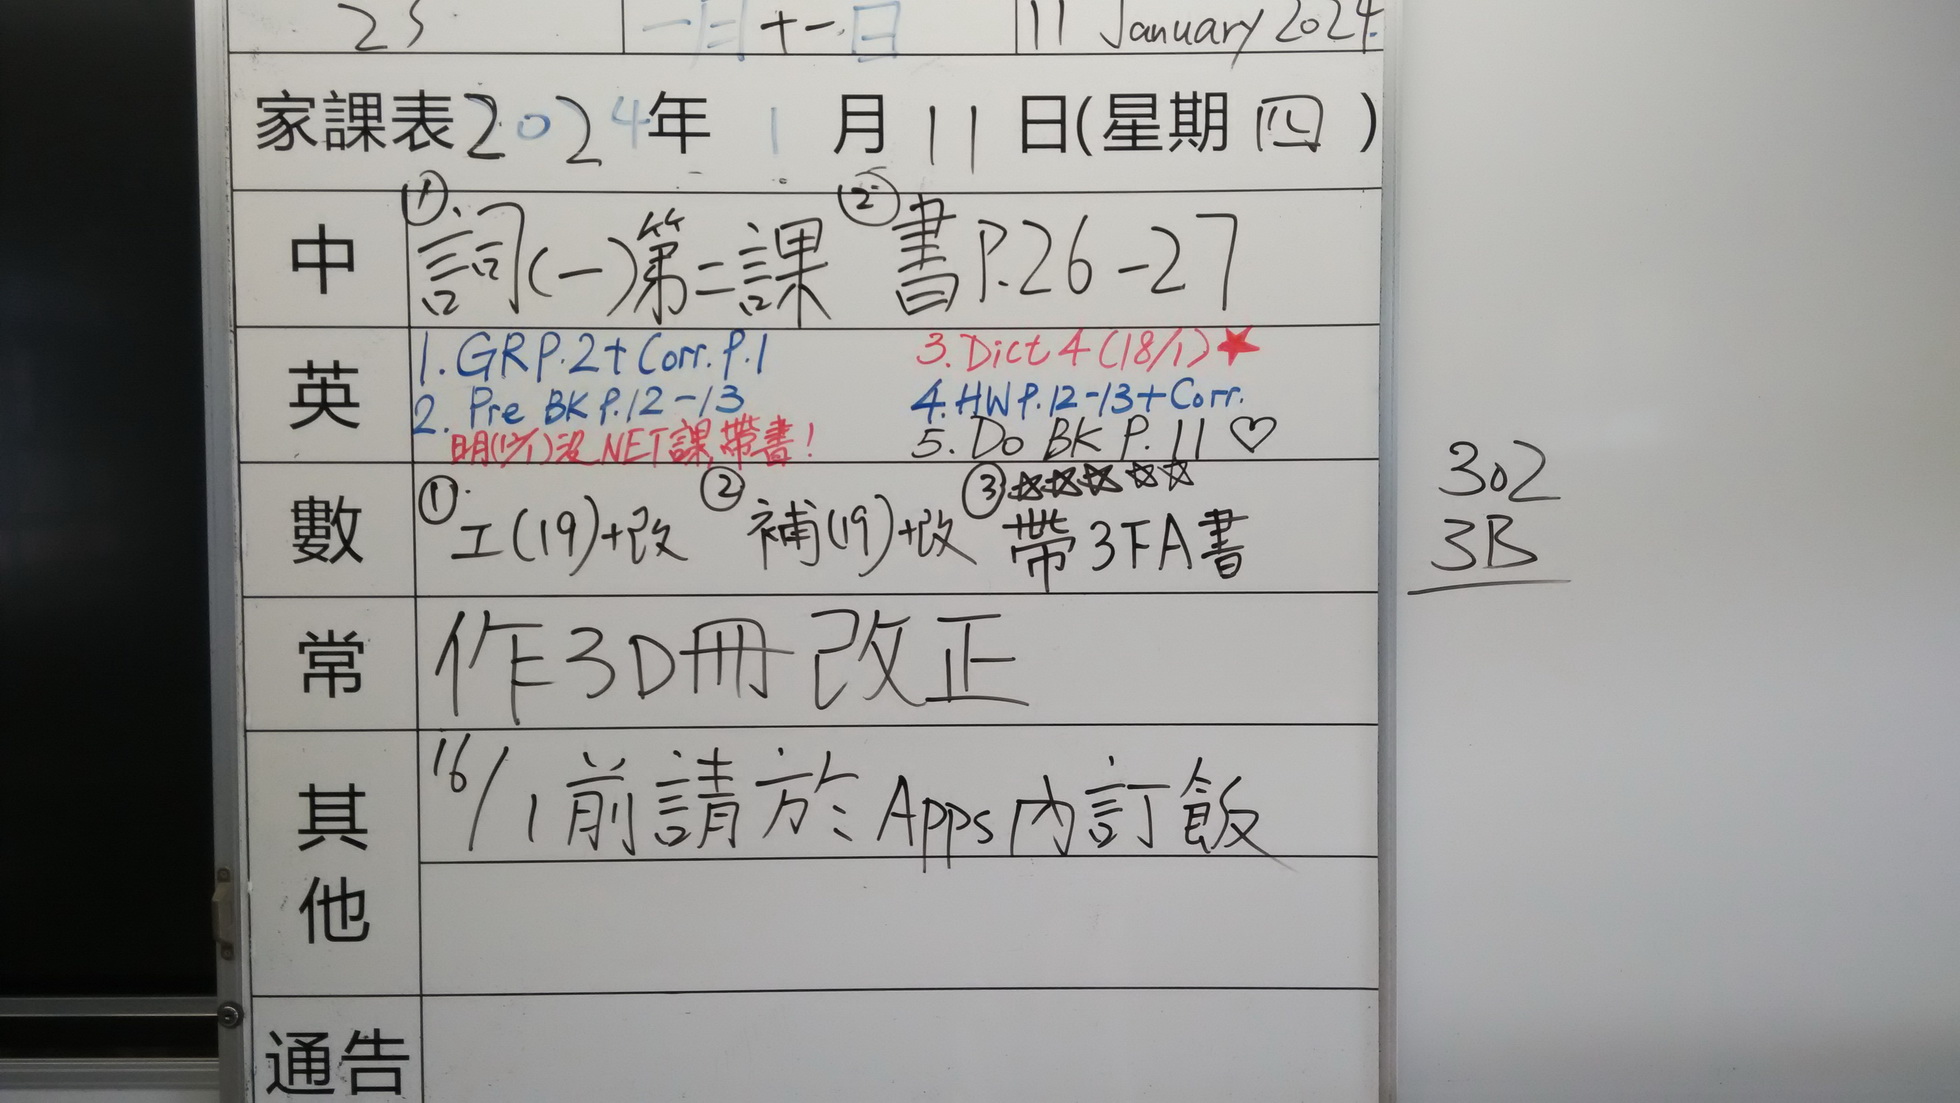 23 一月十一日 11 January 2024.
家課表2024年 1 月 11 日(星期 四 )
中 ①詞(一)第二課 ②書P.26-27
英 1. GR P.2 + Corr. P.1 3. Dict 4 (18/1)★
2. Pre BK P.12-13 4. HW P.12-13 + Corr.
明(12/1)沒NET課,帶書! 5. Do BK P. 11 ♡
數 ①工(19)+改 ②補(19)+改 ③☆☆☆☆☆帶3FA書
常 作3D冊 改正
其他 16/1前請於Apps內訂飯
通告
302
3B